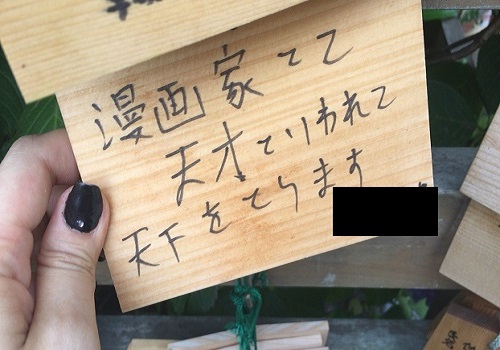 漫画家とて
天才といわれて
天下をとります